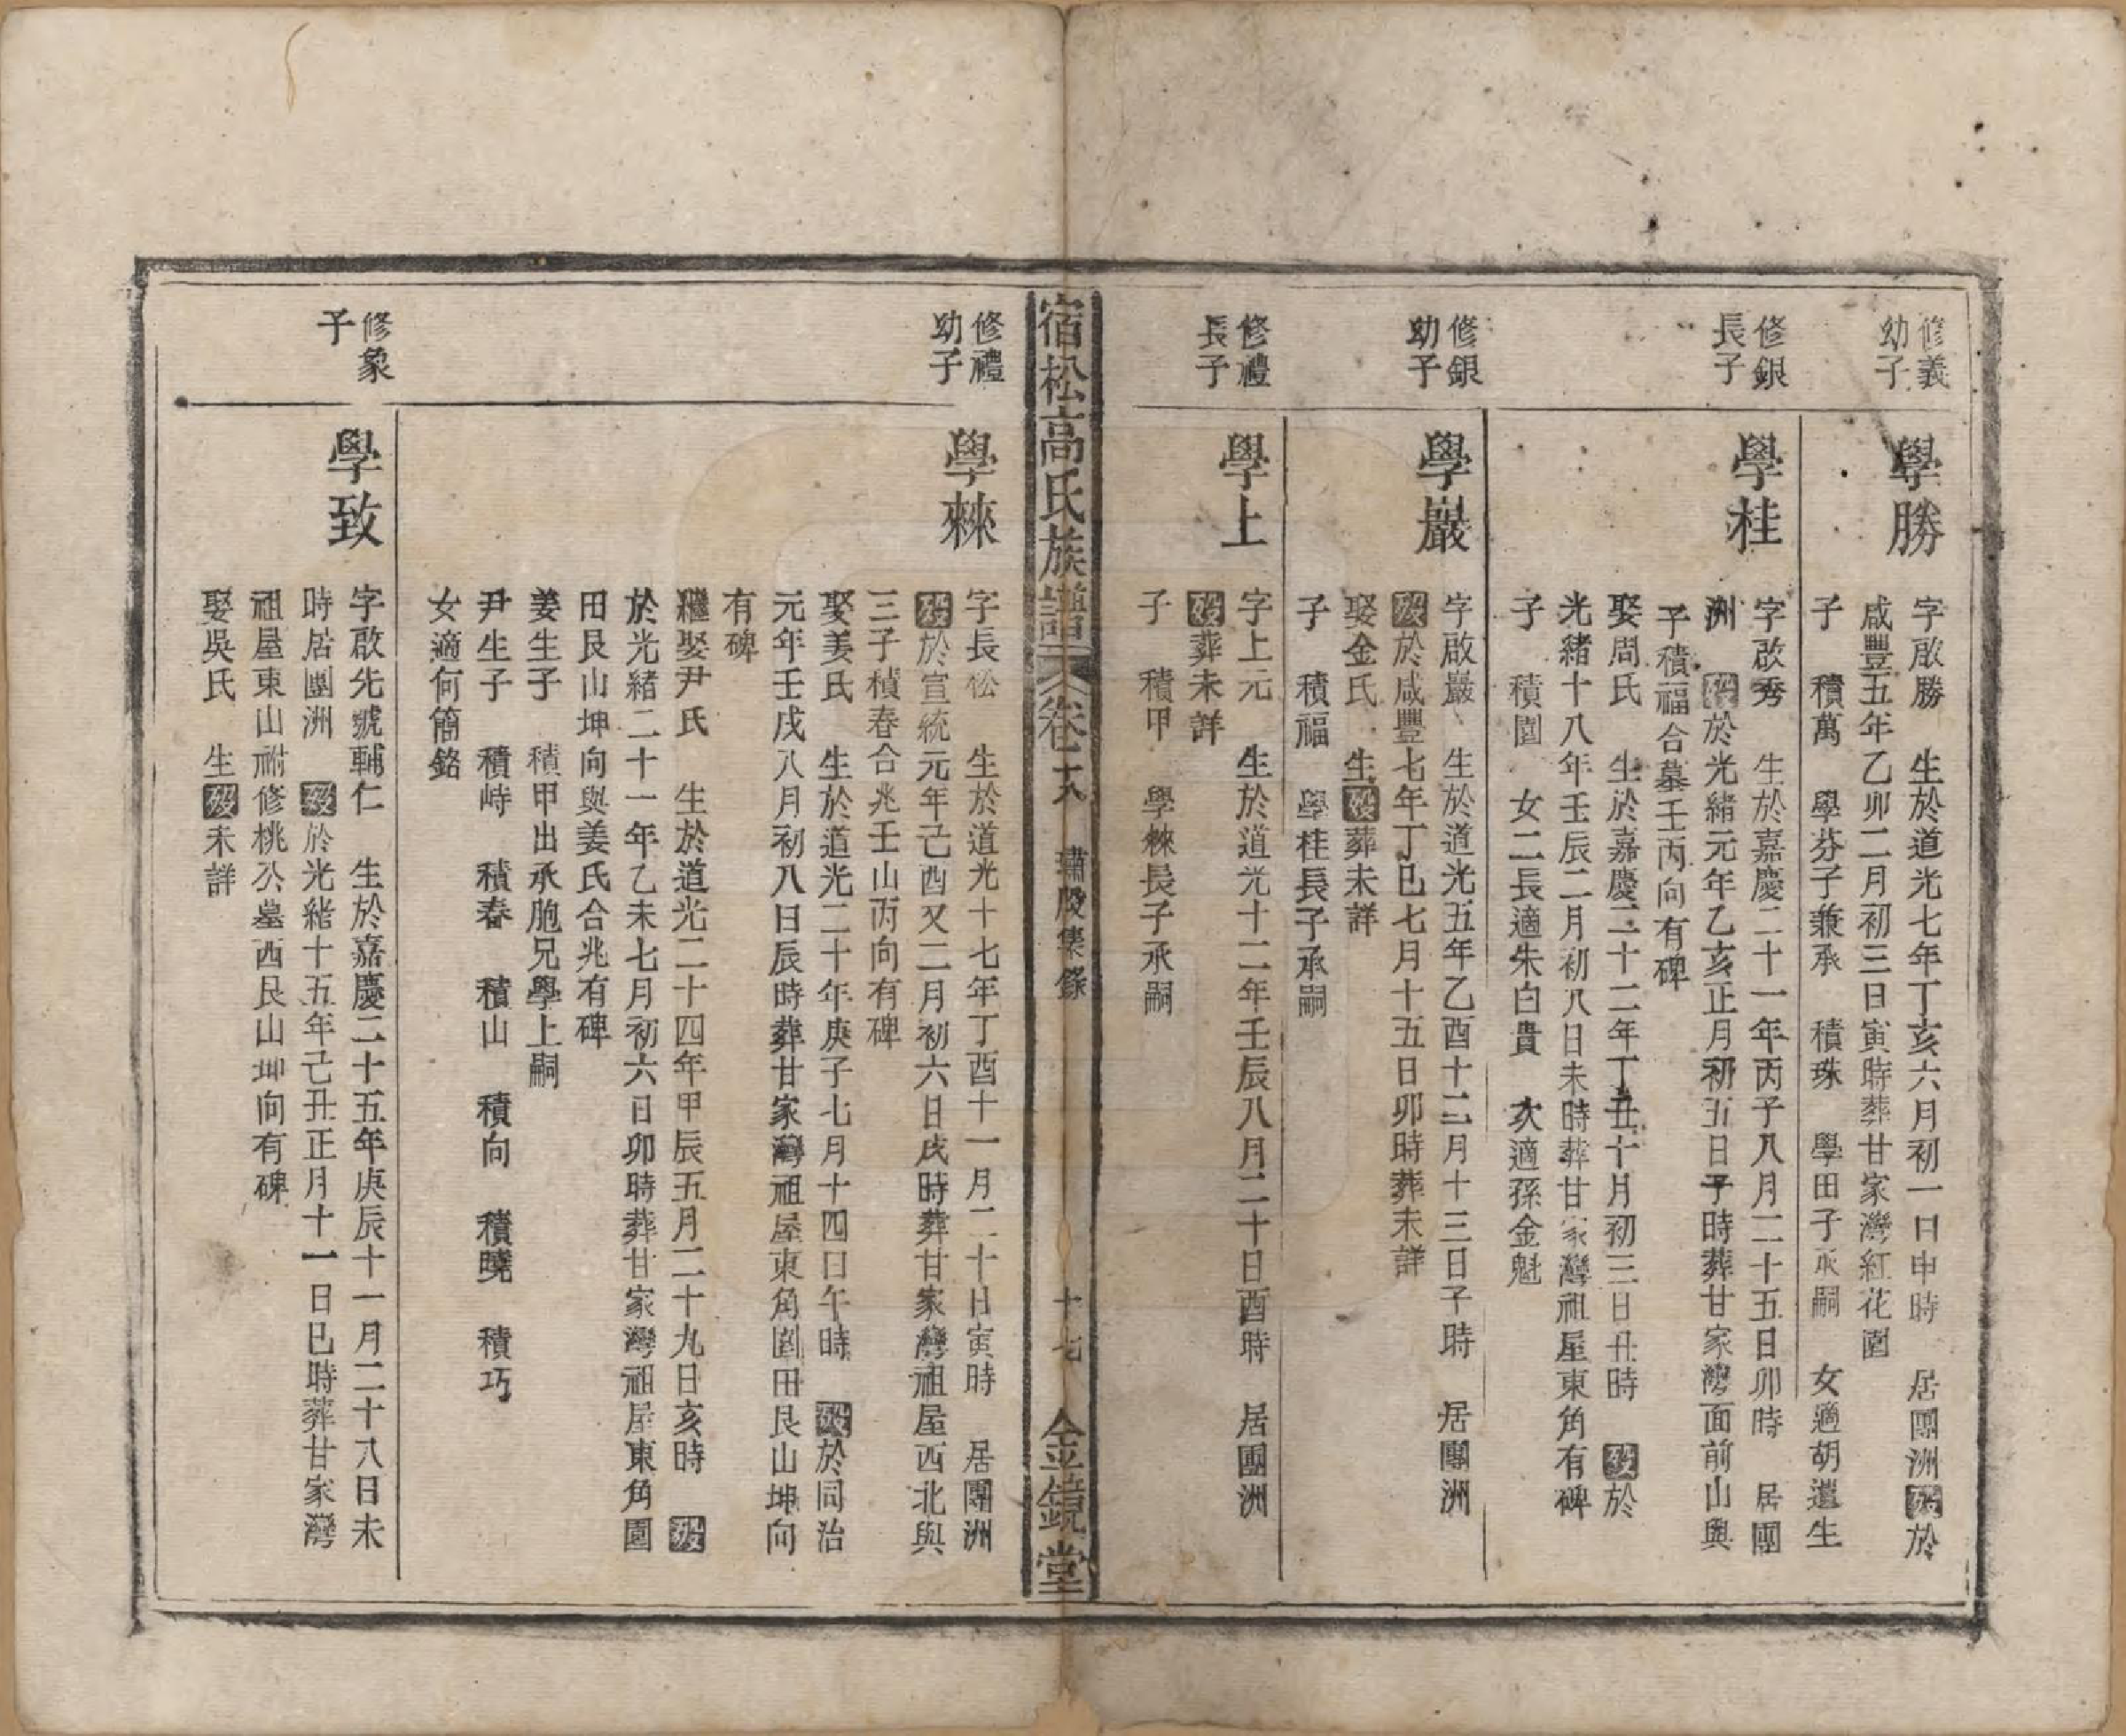 修義
幼子
學勝
字啟勝　生於道光七年丁亥六月初一日申時　居團洲歿於
咸豐五年乙卯二月初三日寅時葬甘家灣紅花園
子　積萬　學芬子兼承　積珠　學田子承嗣　女適胡進生
修銀
長子
學桂
字啟秀　生於嘉慶二十一年丙子八月二十五日卯時　居團
洲　歿於光緒元年乙亥正月初五日子時葬甘家灣面前山與
子積福合墓壬丙向有碑
娶周氏　生於嘉慶二十二年丁丑十月初三日丑時　歿於
光緒十八年壬辰二月初八日未時葬甘家灣祖屋東角有碑
子　積園　女二長適朱白貴　次適孫金魁
修銀
幼子
學巖
字啟巖　生於道光五年乙酉十二月十三日子時　居團洲
歿於咸豐七年丁巳七月十五日卯時葬未詳
娶金氏　生歿葬未詳
子　積福　學桂長子承嗣
修禮
長子
學上
字上元　生於道光十二年壬辰八月二十日酉時　居團洲
歿葬未詳
子　積甲　學棶長子承嗣
宿松高氏族譜　卷十八　璛股集錄　十七　金鏡堂
修禮
幼子
學棶
字長松　生於道光十七年丁酉十一月二十日寅時　居團洲
歿於宣統元年己酉又二月初六日戌時葬甘家灣祖屋西北與
三子積春合兆壬山丙向有碑
娶姜氏　生於道光二十年庚子七月十四日午時　歿於同治
元年壬戌八月初八日辰時葬甘家灣祖屋東角園田艮山坤向
有碑
繼娶尹氏　生於道光二十四年甲辰五月二十九日亥時　歿
於光緒二十一年乙未七月初六日卯時葬甘家灣祖屋東角園
田艮山坤向與姜氏合兆有碑
姜生子　積甲出承胞兄學上嗣
尹生子　積峙　積春　積山　積向　積曉　積巧
女適何簡銘
修象
子
學致
字啟先號輔仁　生於嘉慶二十五年庚辰十一月二十八日未
時居團洲　歿於光緒十五年己丑正月十一日巳時葬甘家灣
祖屋東山祔修桃公墓西艮山坤向有碑
娶吳氏　生歿未詳